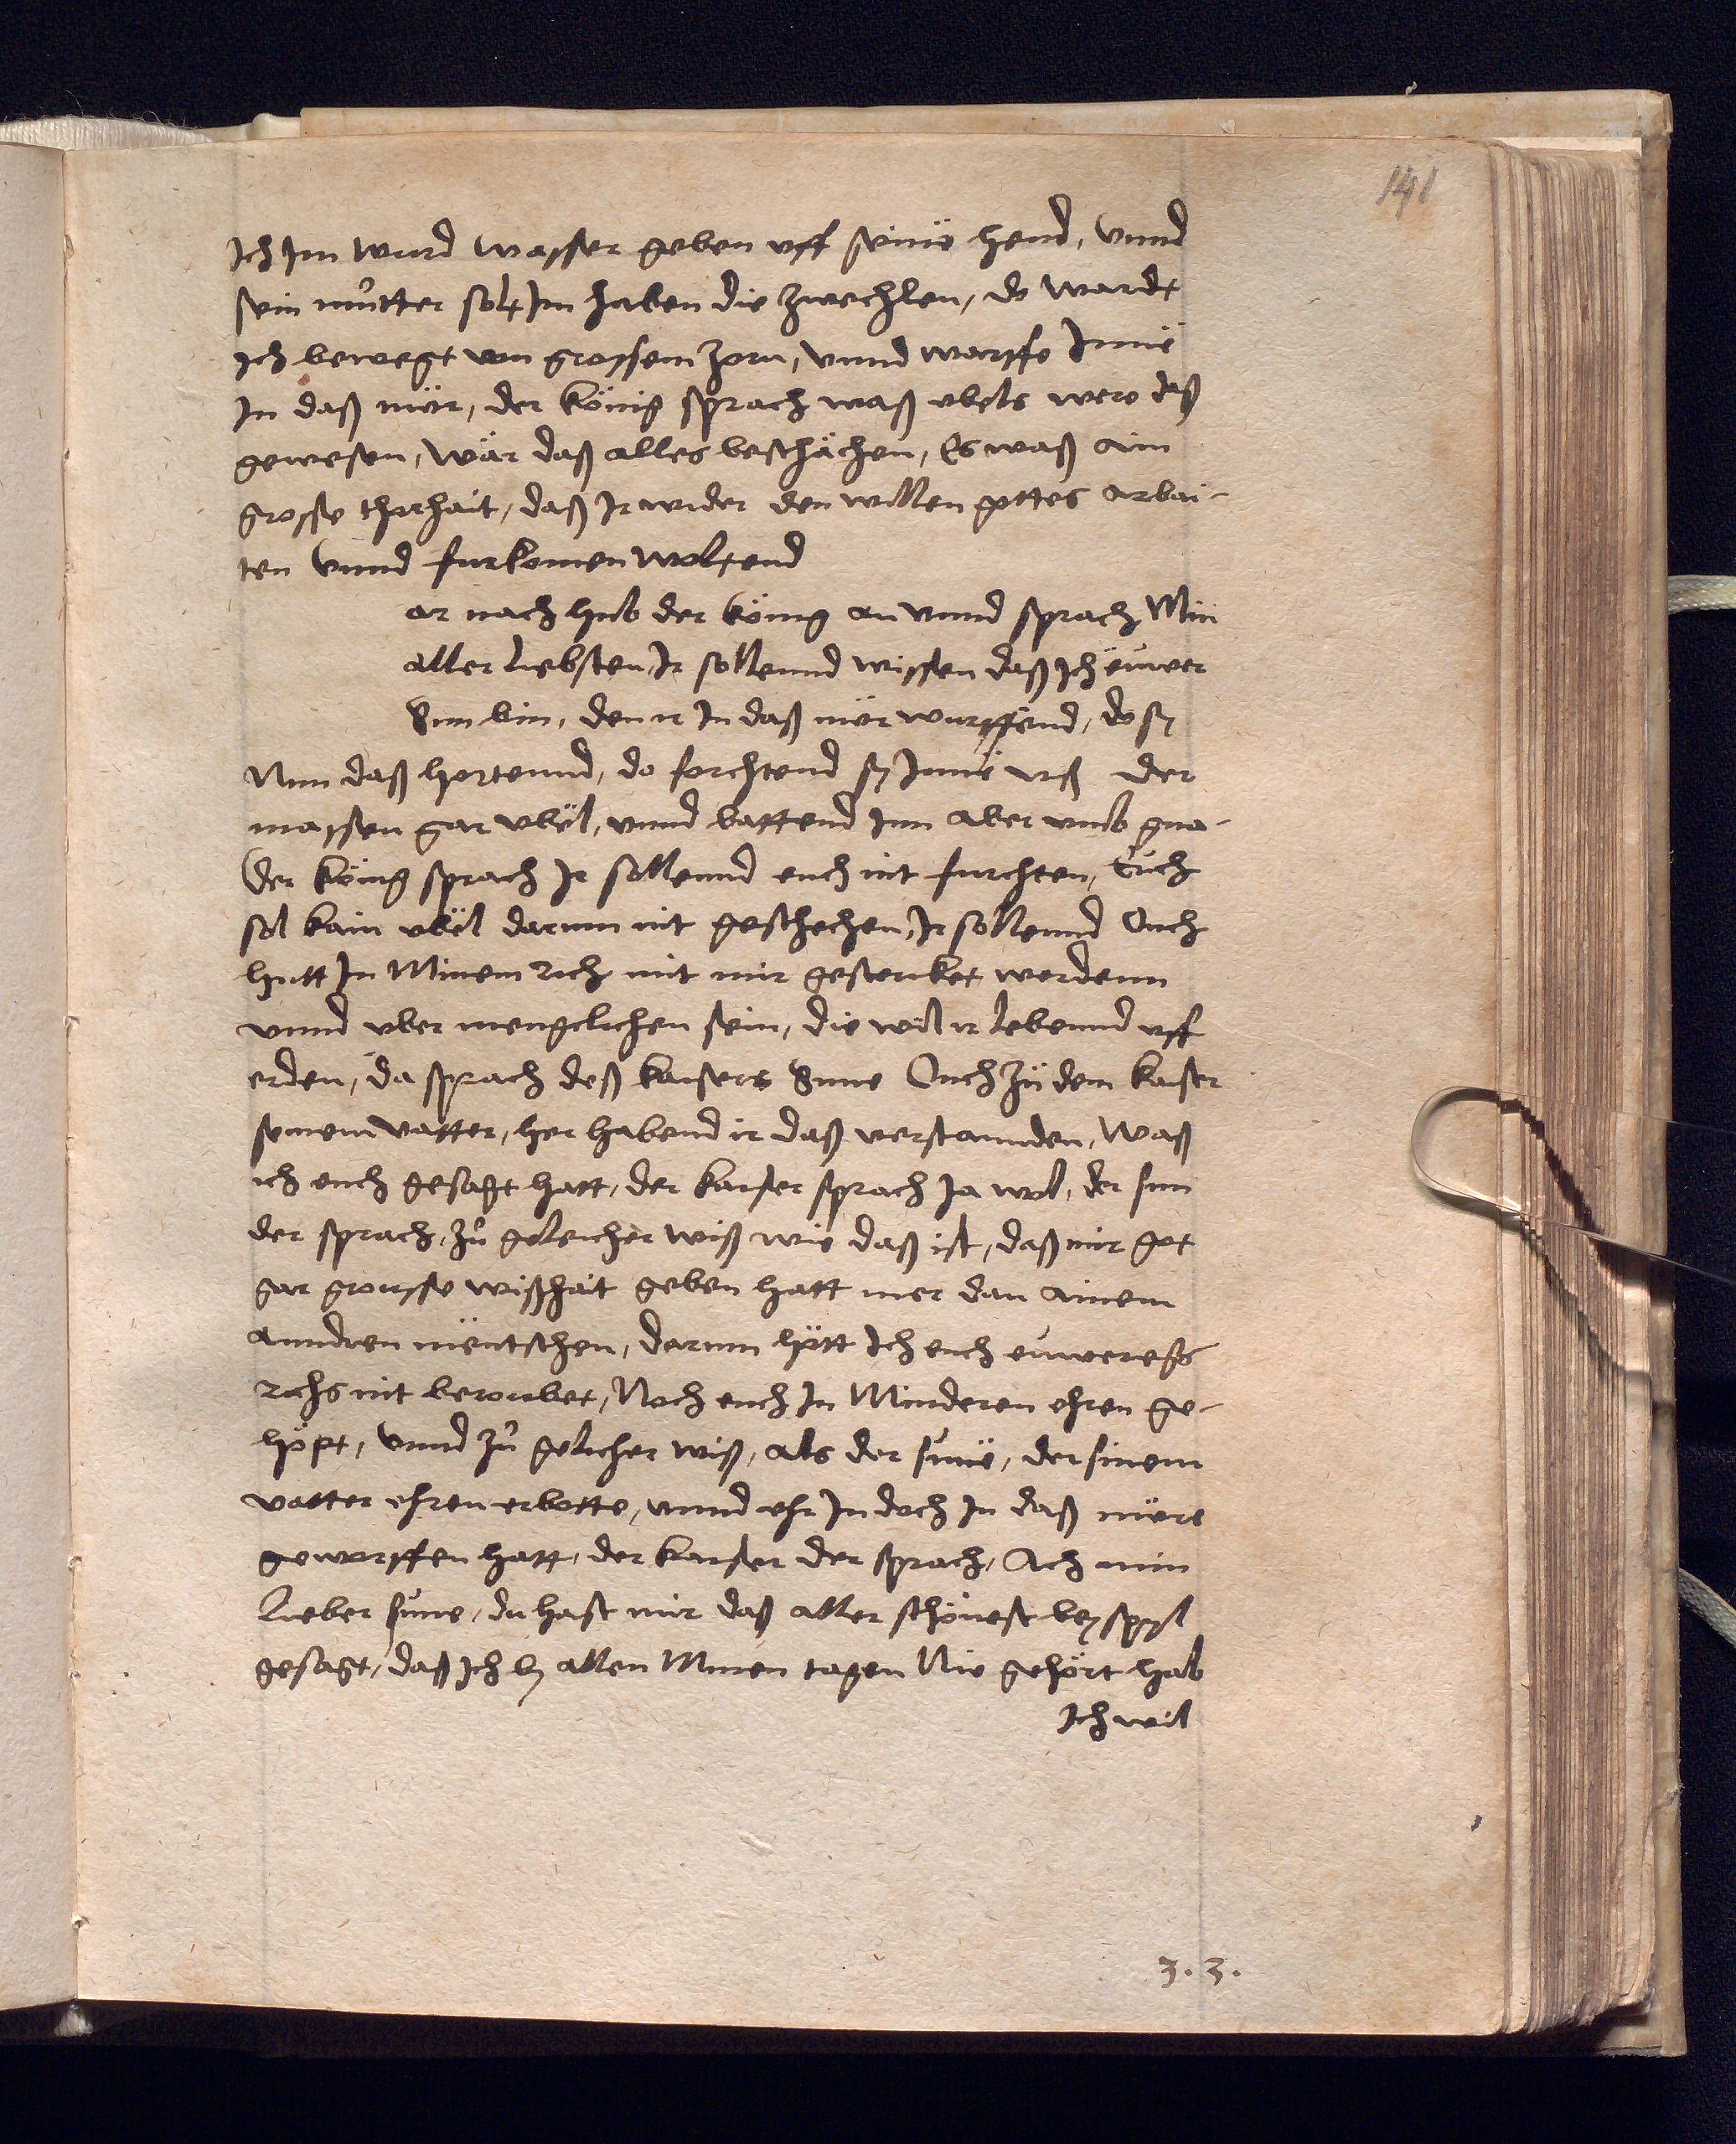 141
Ich Im wurd wasser geben uff seine hend, Vnnd
sein můtter solt Im haben die zwechlen, do wardt
ich bewegt von grossem zorn, vnnd warffe Inne
In daß mör, der könig sprach waß vbels were daß
gewesen, wär daß alles beschächen, Es waß ain
grosse thorhait, daß Ir wider den willen gottes arbai-
ten Vnnd furkomen woltend
ar nach hub der könig an vnnd sprach Min
aller liebsten, Ir sollennd wissen daß Ich euwer
Sun bin, den ir In daß mör wurffend, do sy
Nun daß hortennd, do forchtend sy Inne uß der
massen gar vbel, vnnd battend Inn aber vmb gna-
Der könig sprach Ir sollennd euch nit furchten, Euch
sol kain vbel darum nit geschechen, Ir sollennd Ouch
hutt In Minem Rich mit mir gesterket werdenn
vnnd vber mengclichen sein, die wil ir lebennd uff
erden, da sprach deß kaisers Sune Ouch zů dem kaiser
seinem vatter, her habend ir daß verstannden, Waß
ich euch gesagt hatt, der kaiser sprach Ja wol, der sun
der sprach, zů geleicher wiß wie daß ist, daß mir got
gar grousse wißhait geben hatt mer dan ainem
anndren mentschen, darum hött Ich euch euweress
richs nit beroubet, Noch euch In Minderen ehren ge-
höpt, Vnnd zů gelicher wiß, als der sune, der sinem
vatter ehren erbotte, vnnd ehr In doch In daß möre
geworffen hatt, der kaiser der sprach, Ach min
lieber sune, du hast mir daß aller schönest beyspyl
gesagt, daß Ich by allen Minen tagen Nie gehört hab
Ich wil
3. 3.